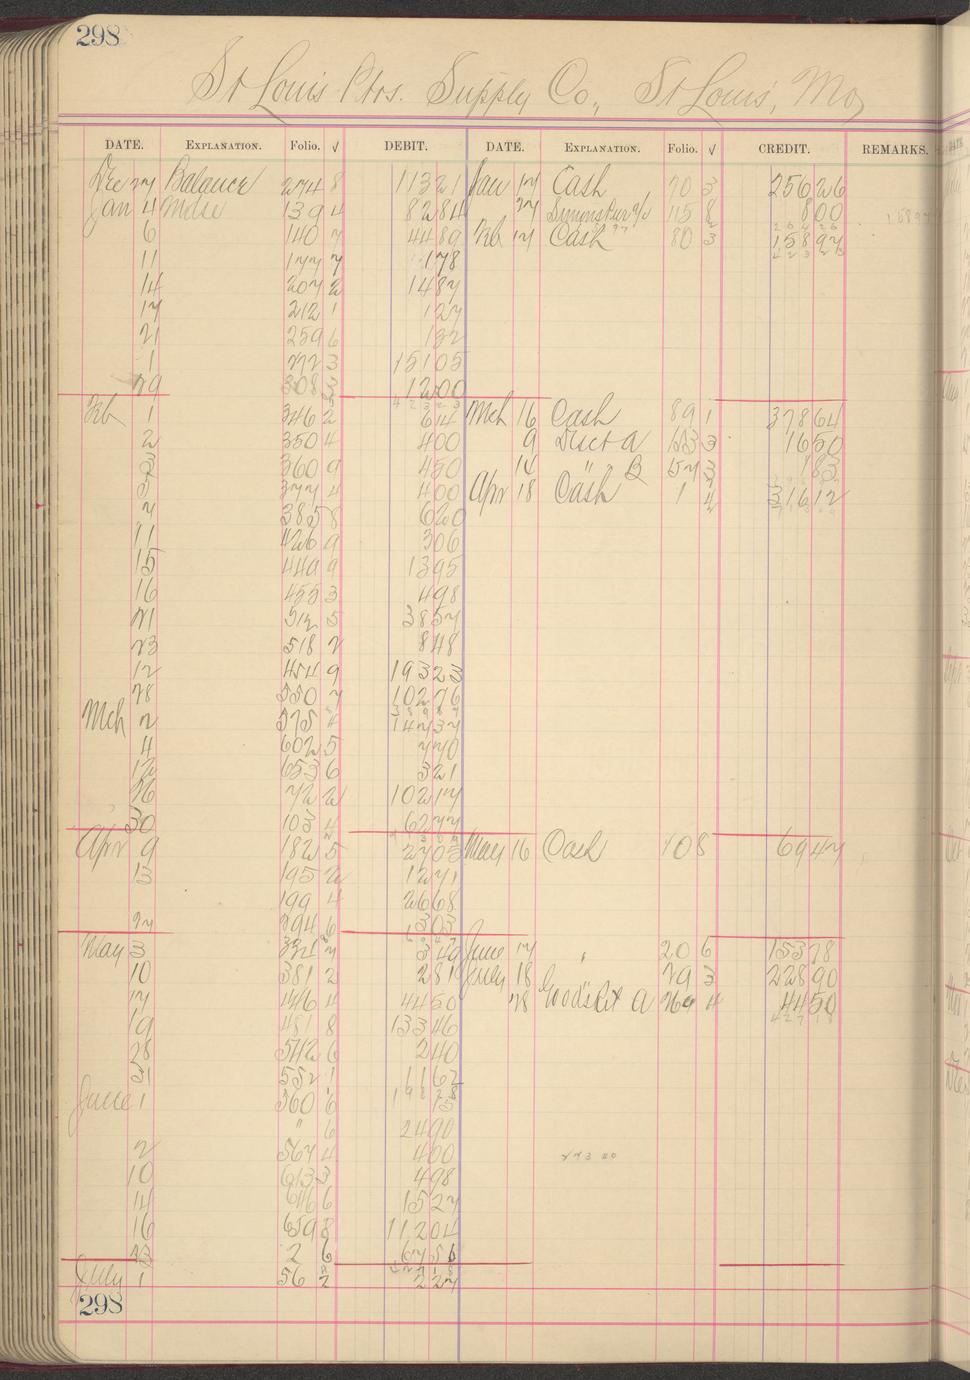 298
St Louis Ptrs. Supply Co., St Louis, Mo,
DATE. EXPLANATION. Folio. √ DEBIT. DATE. EXPLANATION. Folio. √ CREDIT. REMARKS.
Dec 27 Balance 274 8 113 21 Jan 17 Cash 70 3 256 26
Jan 4 Mdse 139 4 82 84 27 115 8 8 00
6 140 7 44 89 Feb 17 Cash 80 3 158 97
11 177 7 1 78
14 207 2 14 87
17 212 1 1 27
21 259 6 1 32
1 272 3 151 05
29 308 3 12 00
Feb 1 346 2 6 14 Mch 16 Cash 89 1 378 64
2 350 4 4 00 9 Disct A 153 3 16 50
3 360 9 4 50 14 " " B 157 3 1 83
5 377 4 4 00 Apr 18 Cash 1 4 316 12
7 385 8 6 20
11 426 9 3 06
15 449 9 13 95
16 455 3 4 98
21 512 5 38 57
23 518 2 8 48
12 454 9 193 23
28 550 7 102 76
Mch 2 575 4 147 37
4 602 5 7 70
12 653 6 3 21
26 72 2 102 17
30 103 4 62 77
Apr 9 182 5 27 05 May 16 Cash 108 69 47
13 195 2 12 71
199 4 26 68
27 294 6 3 03
May 3 321 7 3 49 June 17 " 20 6 153 78
10 381 2 2 81 July 18 " 79 3 228 90
17 446 4 44 50 28 Goods Ret A 269 4 44 50
19 481 8 133 46
28 542 6 2 40
31 552 1 11 62
June 1 560 6 75
" 6 24 90
2 567 4 4 00
10 613 3 4 98
14 646 6 15 27
16 659 8 112 04
23 2 6 67 56
July 1 56 2 2 27
298